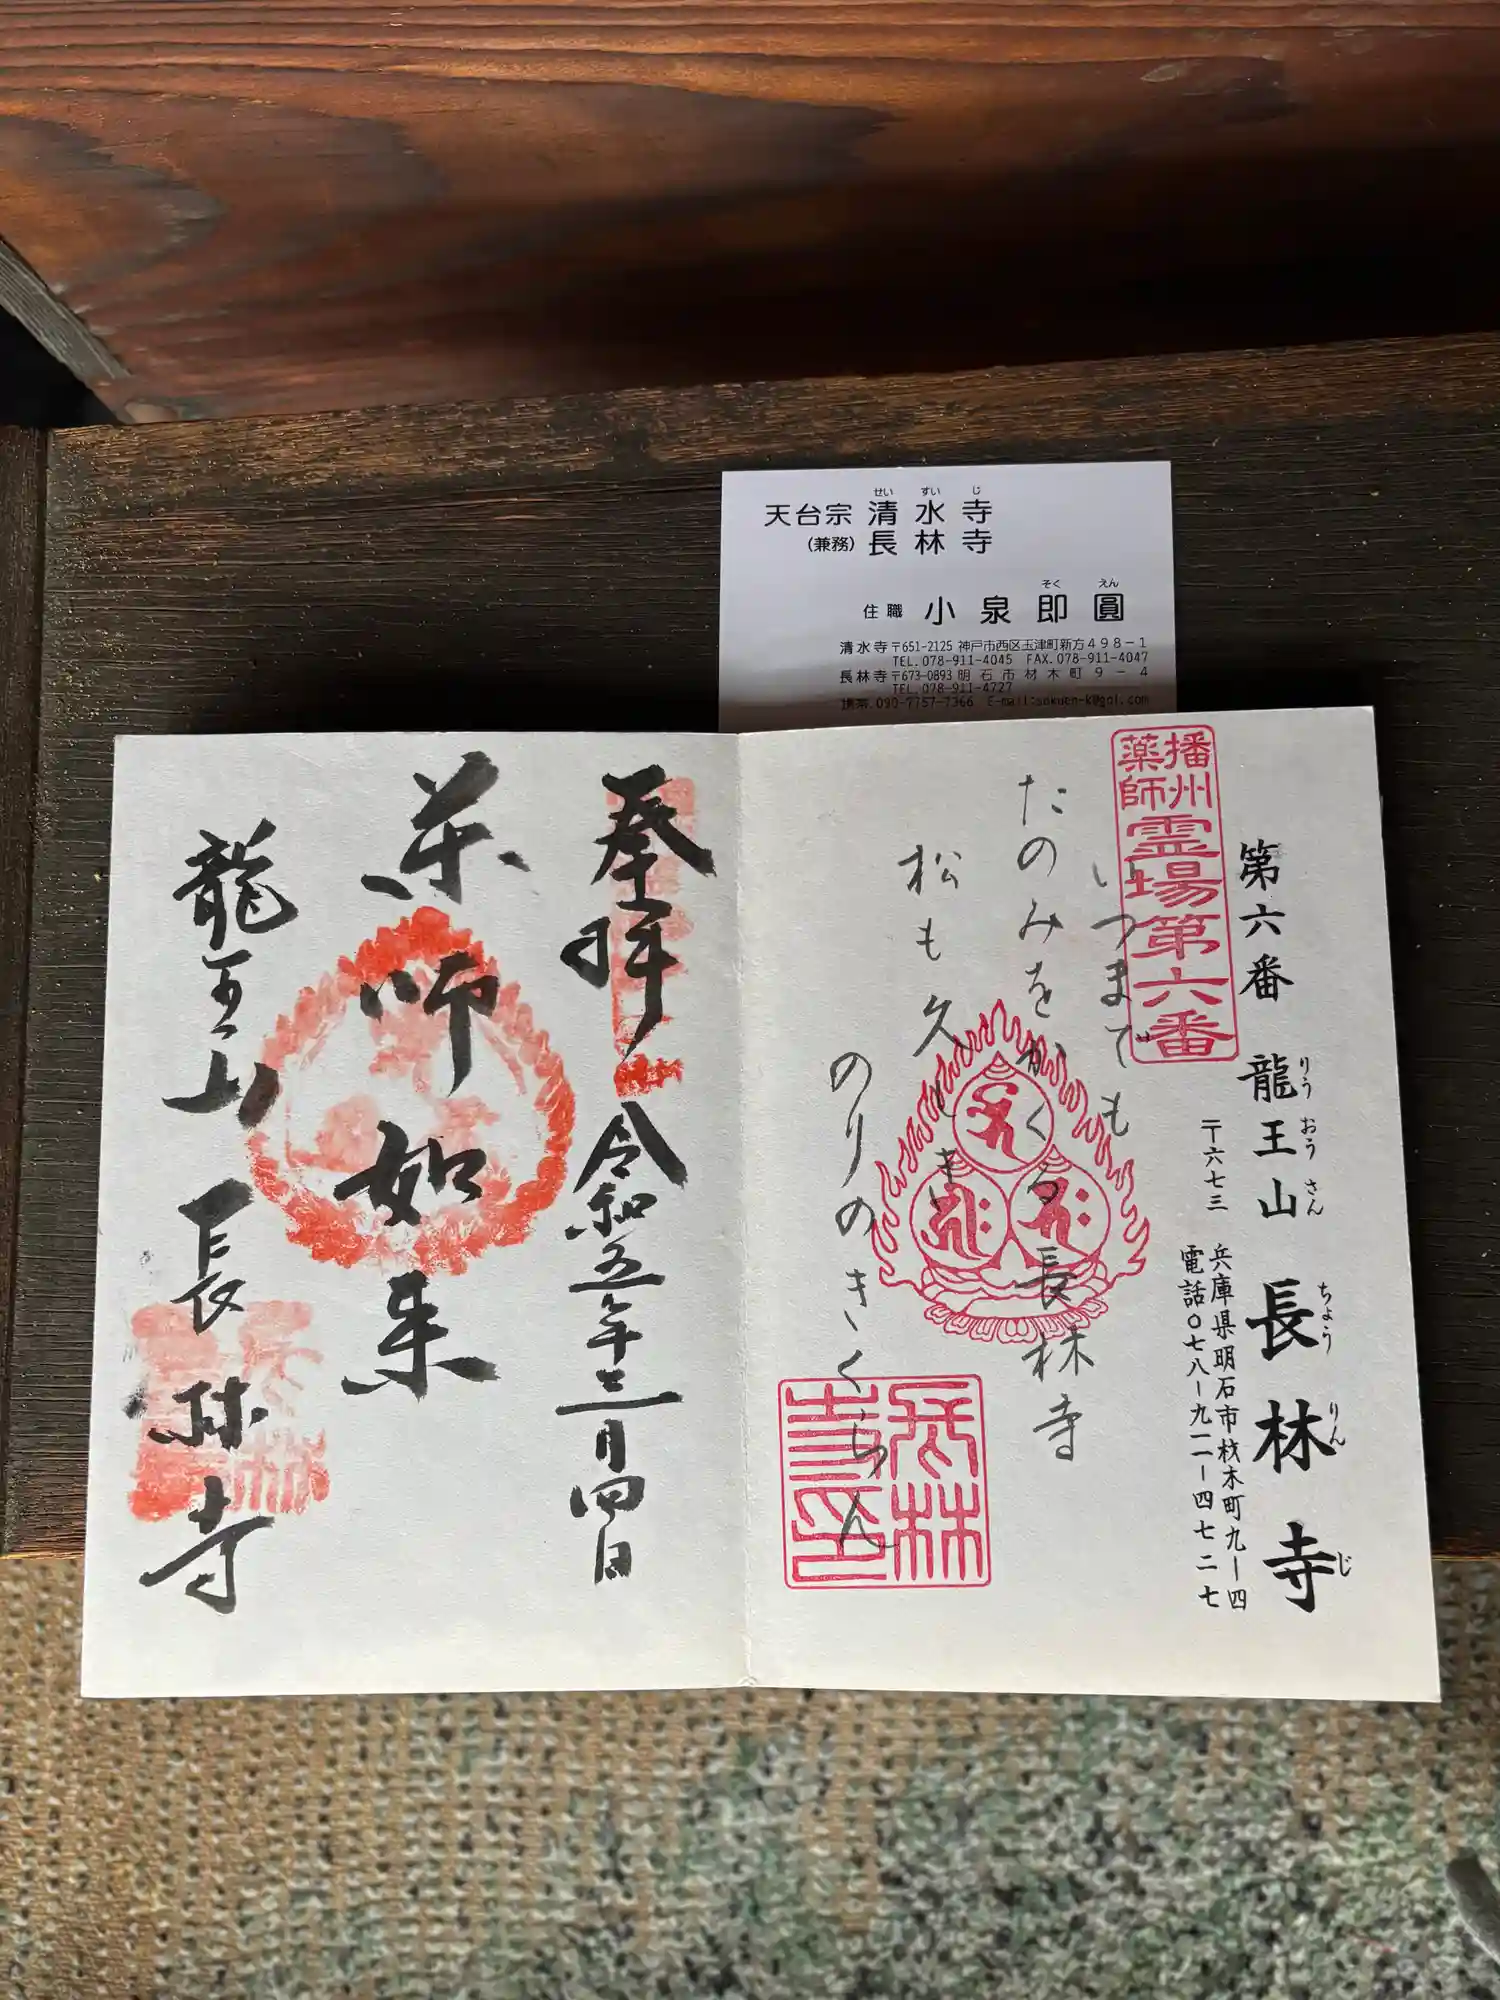 せい すい じ
天台宗 清水寺
(兼務) 長林寺
そく えん
住職 小泉即圓
清水寺 〒651-2125 神戸市西区玉津町新方498-1
TEL.078-911-4045 FAX.078-911-4047
長林寺 〒673-0893 明石市材木町9-4
TEL.078-911-4727
携帯.090-7757-7366 E-mail:sokuen-k@gol.com
第六番 龍王山 長林寺
りう おう さん ちょう りん じ
〒六七三 兵庫県明石市材木町九ー四
電話〇七八ー九一一ー四七二七
播州
薬師
霊場第六番
いつまでも
たのみをかくる長林寺
松も久しき
のりのきくらん
長林
寺印
奉拝 令和五年三月四日
薬師如来
龍王山 長林寺